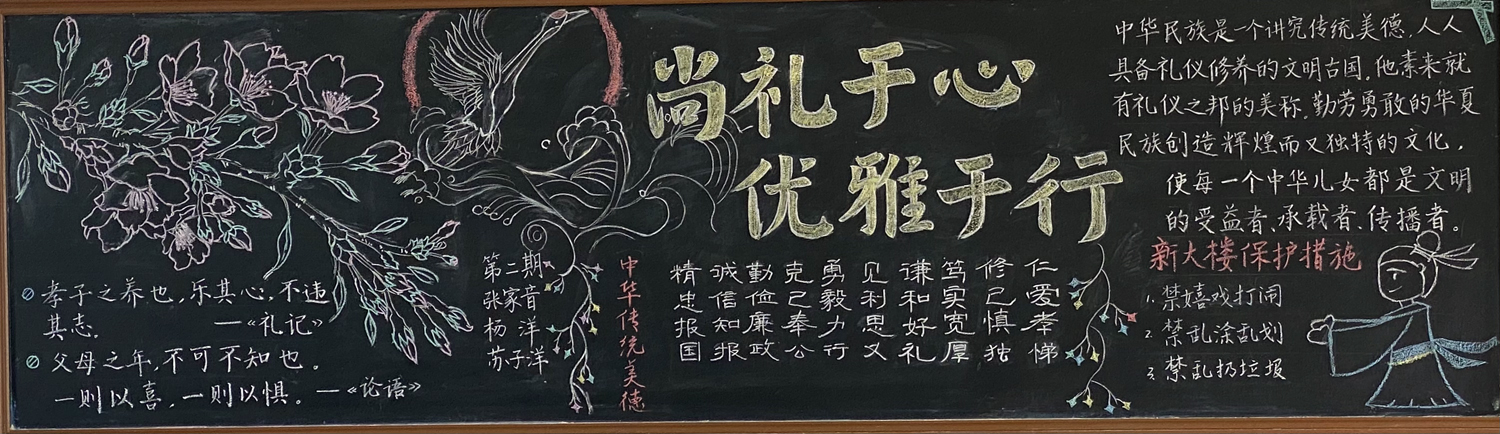 尚礼于心
优雅于行
孝子之养也,乐其心,不违
其志.
—《礼记》
父母之年,不可不知也.
一则以喜,一则以惧.—《论语》
第二期
张家音
杨 洋
苏子洋
中华传统美德
仁爱孝悌
修己慎独
笃实宽厚
谦和好礼
见利思义
勇毅力行
克己奉公
勤俭廉政
诚信知报
精忠报国
中华民族是一个讲究传统美德,人人
具备礼仪修养的文明古国,他素来就
有礼仪之邦的美称.勤劳勇敢的华夏
民族创造辉煌而又独特的文化,
使每一个中华儿女都是文明
的受益者、承载者、传播者.
新大楼保护措施
1.禁嬉戏打闹
2.禁乱涂乱划
3.禁乱扔垃圾